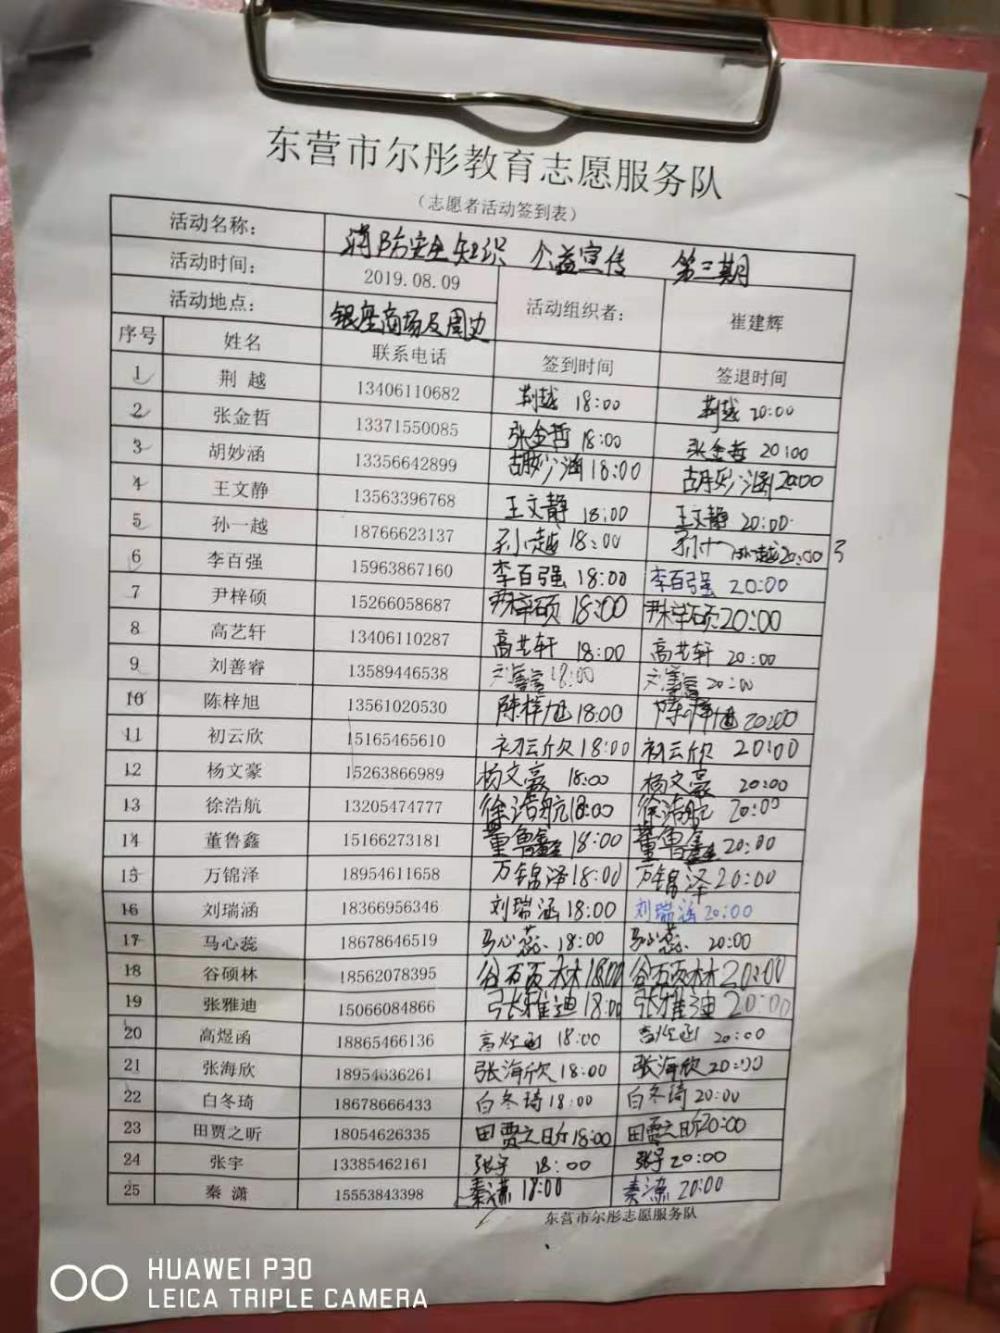 东营市尔彤教育志愿服务队
（志愿者活动签到表）
活动名称： 消防安全知识 公益宣传 第二期
活动时间： 2019.08.09 活动组织者： 崔建辉
活动地点： 银座商场及周边
序号 姓名 联系电话 签到时间 签退时间
1 荆越 13406110682 荆越 18:00 荆越 20:00
2 张金哲 13371550085 张金哲 18:00 张金哲 20:00
3 胡妙涵 13356642899 胡妙涵 18:00 胡妙涵 20:00
4 王文静 13563396768 王文静 18:00 王文静 20:00
5 孙一越 18766623137 孙一越 18:00 孙一越 20:00
6 李百强 15963867160 李百强 18:00 李百强 20:00
7 尹梓硕 15266058687 尹梓硕 18:00 尹梓硕 20:00
8 高艺轩 13406110287 高艺轩 18:00 高艺轩 20:00
9 刘善睿 13589446538 刘善睿 18:00 刘善睿 20:00
10 陈梓旭 13561020530 陈梓旭 18:00 陈梓旭 20:00
11 初云欣 15165465610 初云欣 18:00 初云欣 20:00
12 杨文豪 15263866989 杨文豪 18:00 杨文豪 20:00
13 徐浩航 13205474777 徐浩航 18:00 徐浩航 20:00
14 董鲁鑫 15166273181 董鲁鑫 18:00 董鲁鑫 20:00
15 万锦泽 18954611658 万锦泽 18:00 万锦泽 20:00
16 刘瑞涵 18366956346 刘瑞涵 18:00 刘瑞涵 20:00
17 马心蕊 18678646519 马心蕊 18:00 马心蕊 20:00
18 谷硕林 18562078395 谷硕林 18:00 谷硕林 20:00
19 张雅迪 15066084866 张雅迪 18:00 张雅迪 20:00
20 高煜函 18865466136 高煜函 18:00 高煜函 20:00
21 张海欣 18954636261 张海欣 18:00 张海欣 20:00
22 白冬琦 18678666433 白冬琦 18:00 白冬琦 20:00
23 田贾之昕 18054626335 田贾之昕 18:00 田贾之昕 20:00
24 张宇 13385462161 张宇 18:00 张宇 20:00
25 秦潇 15553843398 秦潇 18:00 秦潇 20:00
东营市尔彤志愿服务队
HUAWEI P30
LEICA TRIPLE CAMERA